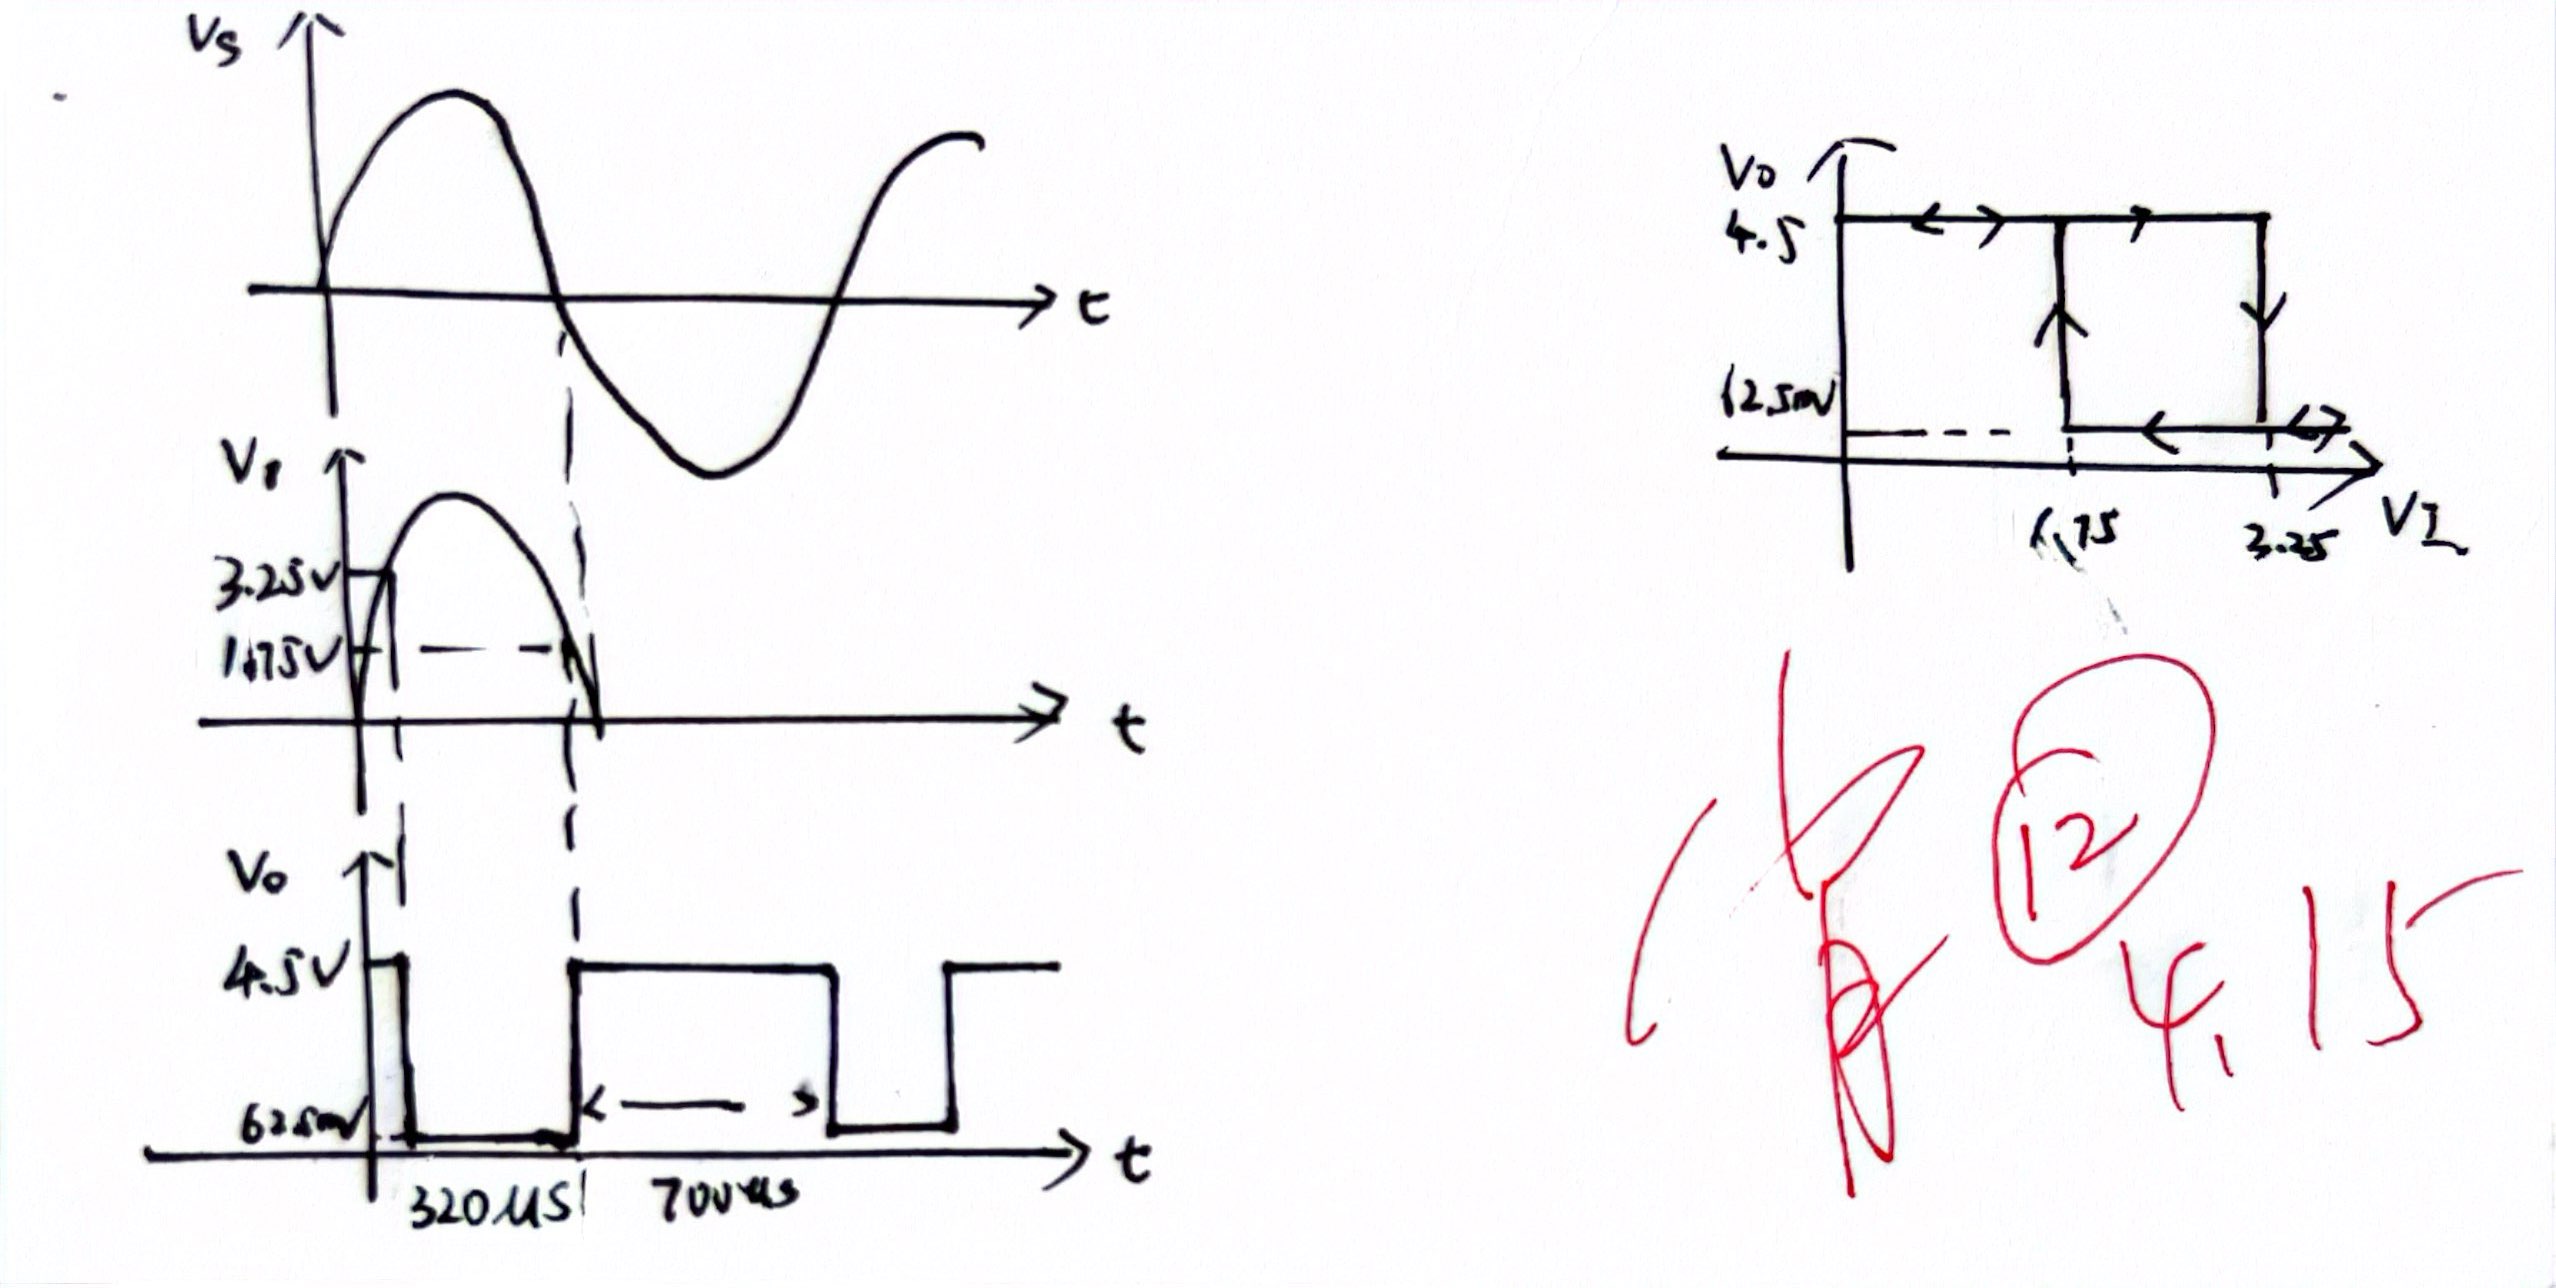 Vs
t
VI
3.25V
1.75V
t
Vo
4.5V
62.5mV
t
320μs
700μs
Vo
4.5
62.5mV
1.75
3.25
VI
12
4.15